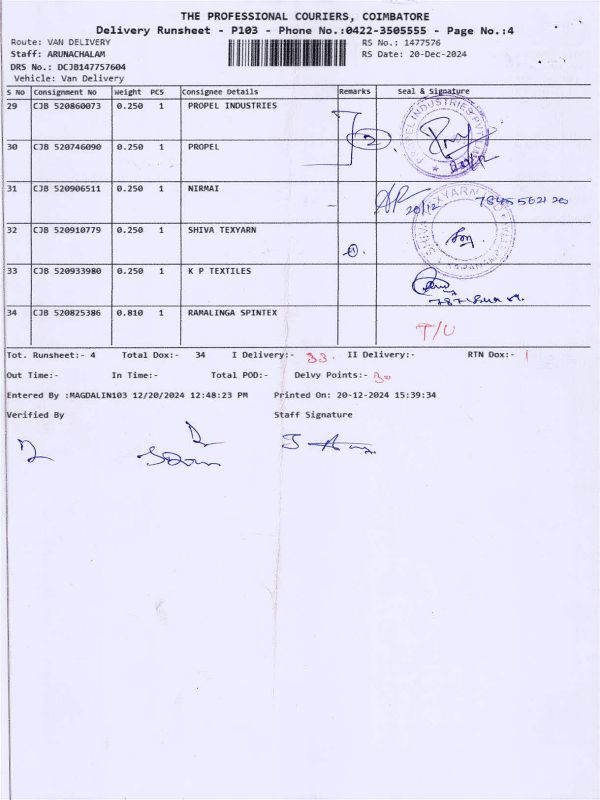 THE PROFESSIONAL COURIERS, COIMBATORE
Delivery Runsheet - P103 - Phone No.:0422-3505555 - Page No.:4
Route: VAN DELIVERY RS No.: 1477576
Staff: ARUNACHALAM RS Date: 20-Dec-2024
DRS No.: DCJB147757604
Vehicle: Van Delivery
S No Consignment No Weight PCS Consignee Details Remarks Seal & Signature
29 CJB 520860073 0.250 1 PROPEL INDUSTRIES
30 CJB 520746090 0.250 1 PROPEL 2
31 CJB 520906511 0.250 1 NIRMAI 20/12
32 CJB 520910779 0.250 1 SHIVA TEXYARN
33 CJB 520933980 0.250 1 K P TEXTILES
34 CJB 520825386 0.810 1 RAMALINGA SPINTEX T/U
Tot. Runsheet:- 4 Total Dox:- 34 I Delivery:- 33. II Delivery:- RTN Dox:- 1
Out Time:- In Time:- Total POD:- Delvy Points:- 30
Entered By :MAGDALIN103 12/20/2024 12:48:23 PM Printed On: 20-12-2024 15:39:34
Verified By Staff Signature